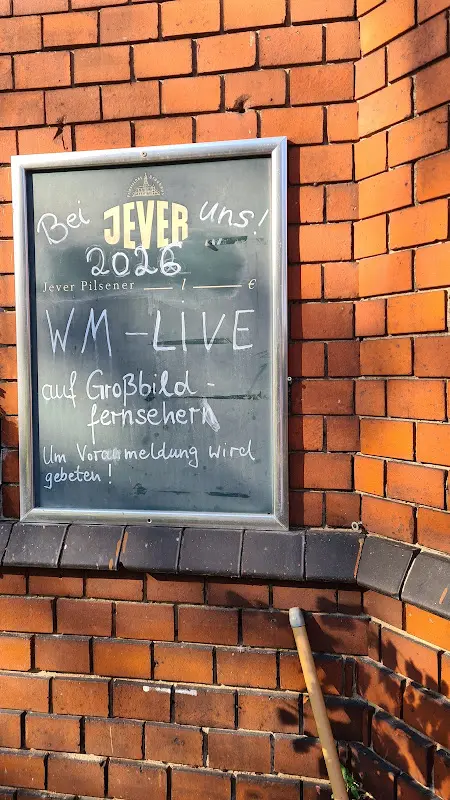 Bei JEVER uns!
2026
Jever Pilsener — l — €
WM-LIVE
auf Großbild-
fernsehern
Um Voranmeldung wird
gebeten!